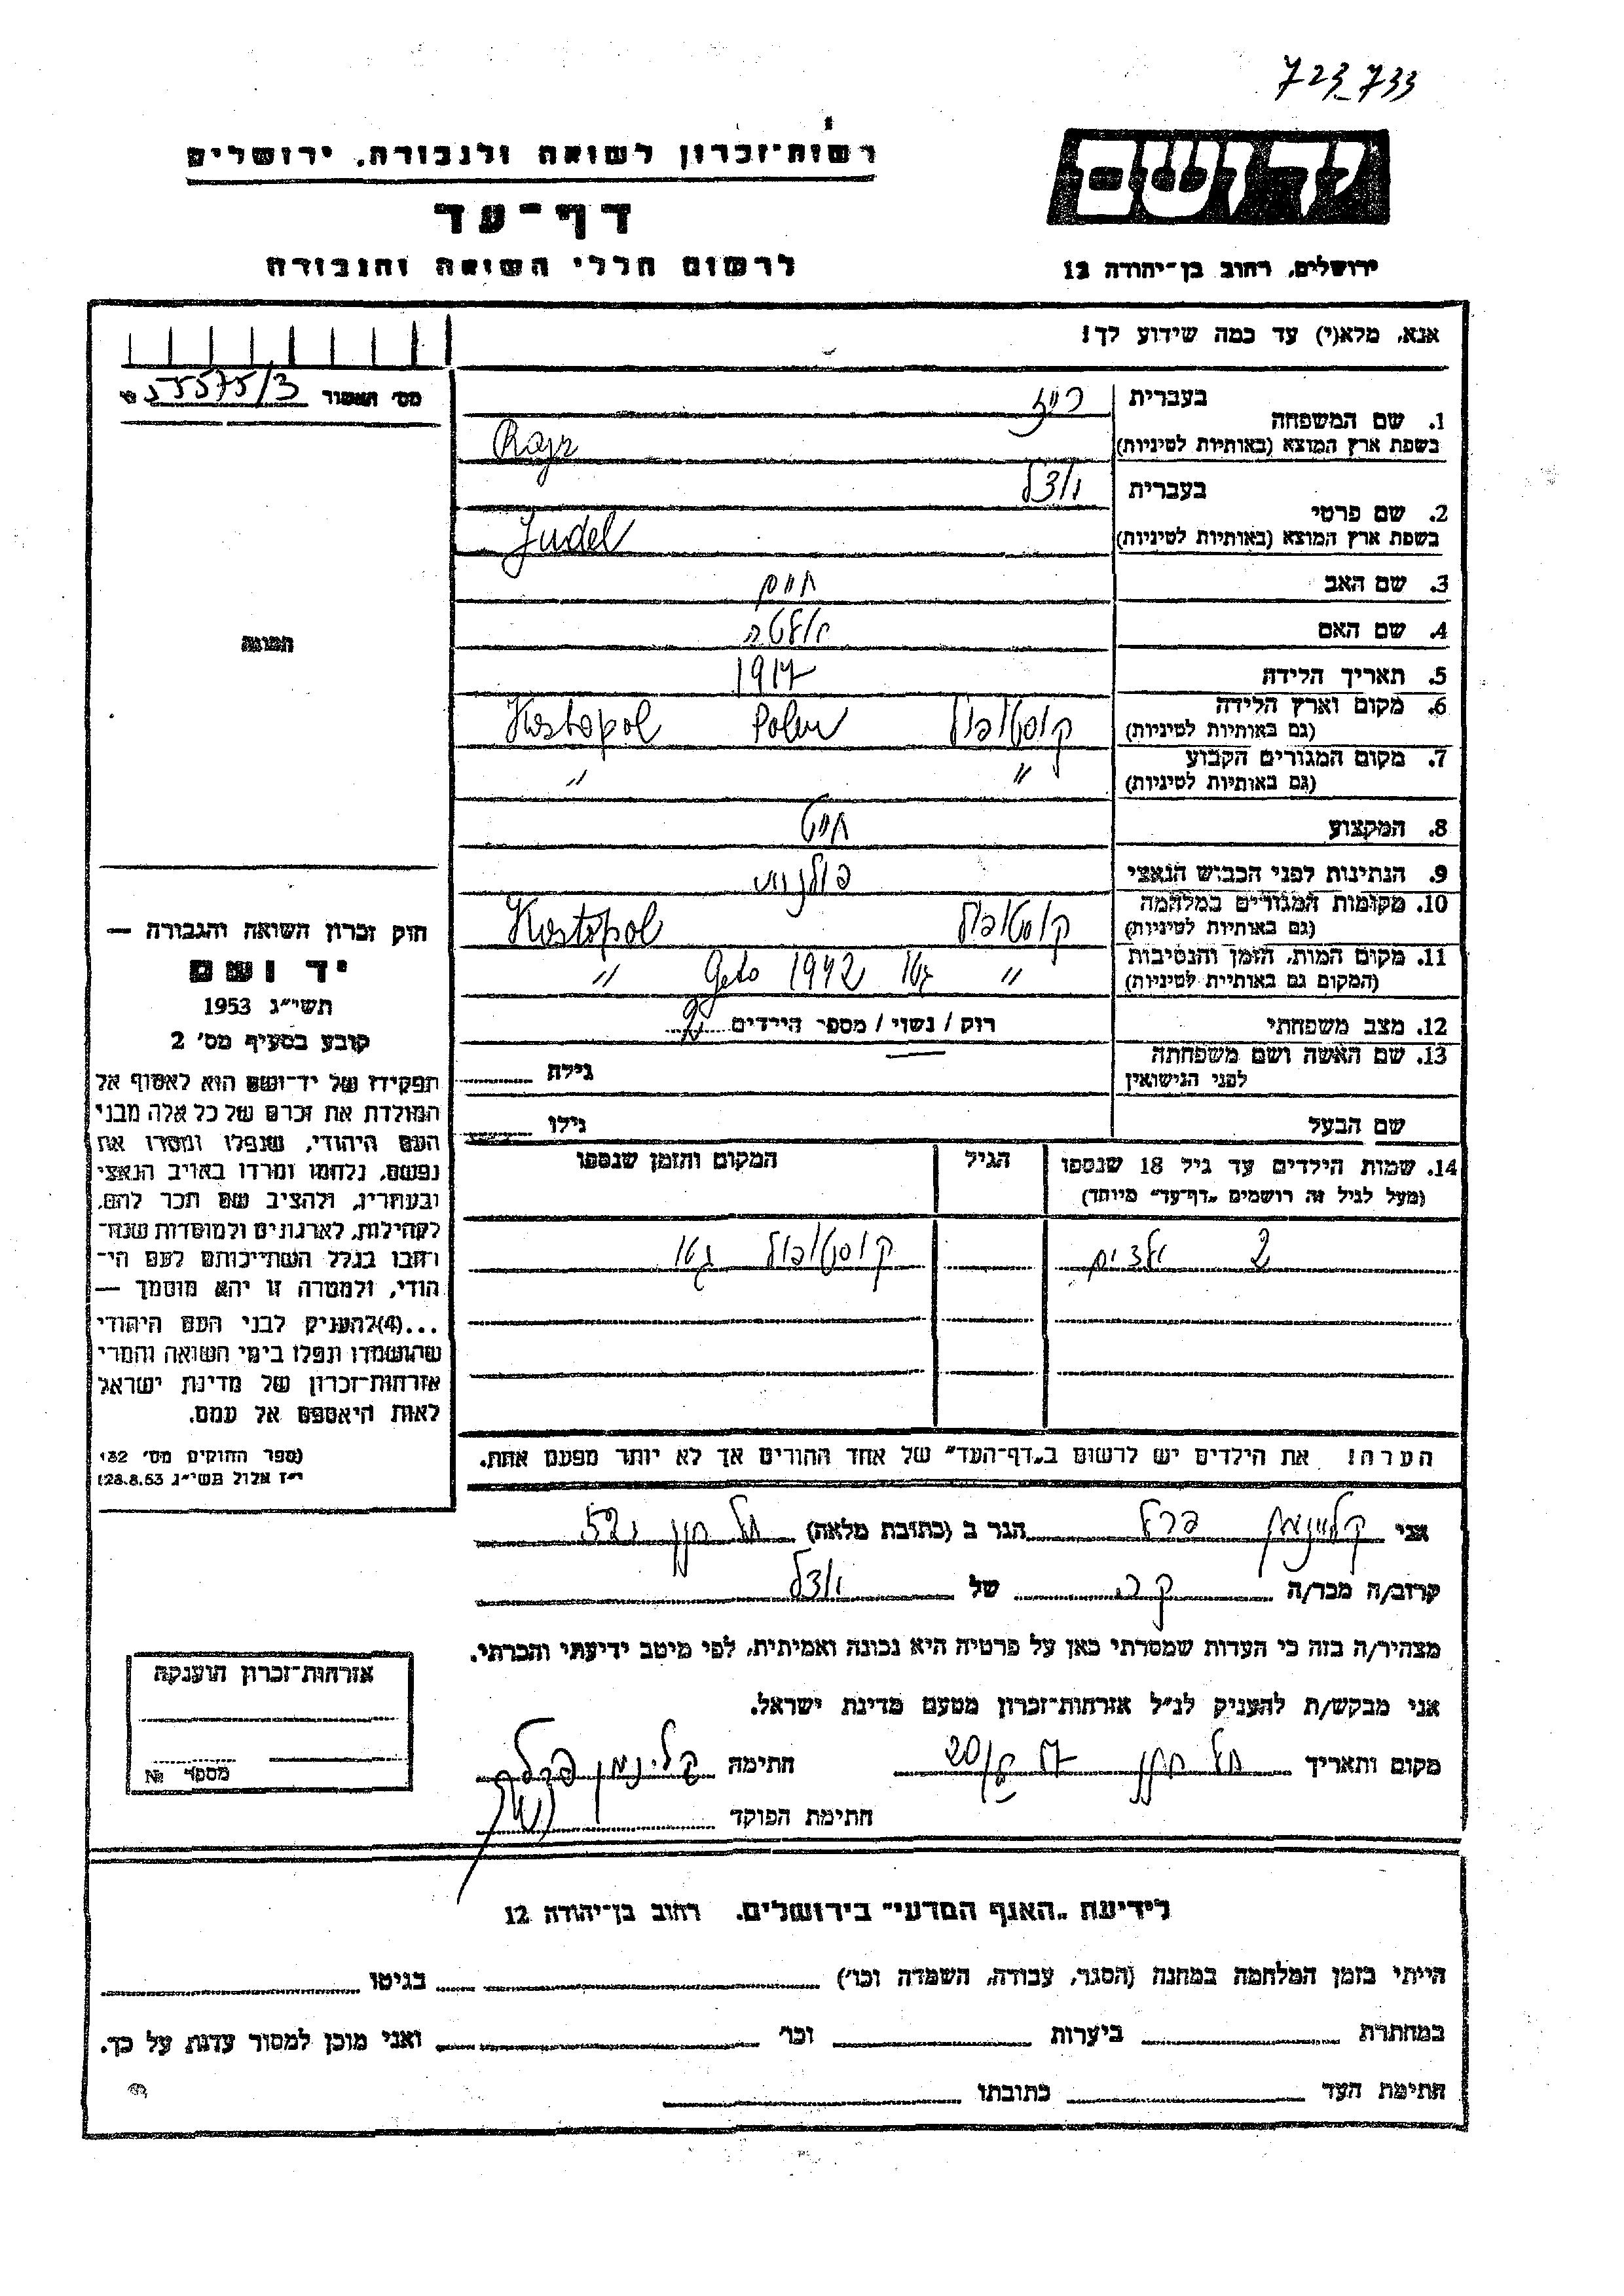 723-733
רשות־זכרון לשואה ולגבורה, ירושלים
יד ושם
דף־עד
לרשום חללי השואה והגבורה
ירושלים, רחוב בן־יהודה 12
אנא, מלא(י) עד כמה שידוע לך!
מס׳ האשור 55575/3
1. שם המשפחה
בעברית
בשפת ארץ המוצא (באותיות לטיניות) Rajz
2. שם פרטי
בעברית יודל
בשפת ארץ המוצא (באותיות לטיניות) Judel
3. שם האב חיים
4. שם האם
5. תאריך הלידה 1917
6. מקום וארץ הלידה קוסטופול Polen Kostopol
(גם באותיות לטיניות)
7. מקום המגורים הקבוע " "
(גם באותיות לטיניות)
8. המקצוע חייט
9. הנתינות לפני הכבוש הנאצי פולנית
10. מקומות המגורים במלחמה קוסטופול Kostopol
(גם באותיות לטיניות)
11. מקום המות, הזמן והנסיבות " גטו 1942 Geto "
(המקום גם באותיות לטיניות)
12. מצב משפחתי רוק / נשוי / מספר הילדים 2
13. שם האשה ושם משפחתה
לפני הנישואין גילה
שם הבעל גילו
14. שמות הילדים עד גיל 18 שנספו הגיל המקום והזמן שנספו
(מעל לגיל זה רושמים „דף־עד" מיוחד)
2 ילדים קוסטופול גטו
הערה! את הילדים יש לרשום ב„דף־העד" של אחד ההורים אך לא יותר מפעם אחת.
תמונה
חוק זכרון השואה והגבורה —
יד ושם
תשי״ג 1953
קובע בסעיף מס׳ 2
תפקידו של יד־ושם הוא לאסוף אל
המולדת את זכרם של כל אלה מבני
העם היהודי, שנפלו ומסרו את
נפשם, נלחמו ומרדו באויב הנאצי
ובעוזריו, ולהציב שם וזכר להם,
לקהילות, לארגונים ולמוסדות שנח־
רחבו בגלל השתייכותם לעם הי־
הודי, ולמטרה זו יהא מוסמך —
...(4)להעניק לבני העם היהודי
שהושמדו ונפלו בימי השואה והמרי
אזרחות־זכרון של מדינת ישראל
לאות היאספם אל עמם.
(ספר החוקים מס׳ 132
י״ז אלול תשי״ג 28.8.53)
אני קליינמן פרל הגר ב (כתובת מלאה) תל חנן
קרוב/ה מכר/ה של יודל
מצהיר/ה בזה כי העדות שמסרתי כאן על פרטיה היא נכונה ואמיתית, לפי מיטב ידיעתי והכרתי.
אני מבקש/ת להעניק לנ״ל אזרחות־זכרון מטעם מדינת ישראל.
מקום ותאריך תל חנן חתימה קליינמן פרל
חתימת הפוקד
אזרחות־זכרון הוענקה
מספר №
לידיעת „האגף המדעי" בירושלים. רחוב בן־יהודה 12
הייתי בזמן המלחמה במחנה (הסגר, עבודה, השמדה וכו׳) בגיטו
במחתרת ביערות וכו׳ ואני מוכן למסור עדות על כך.
חתימת העד כתובתו